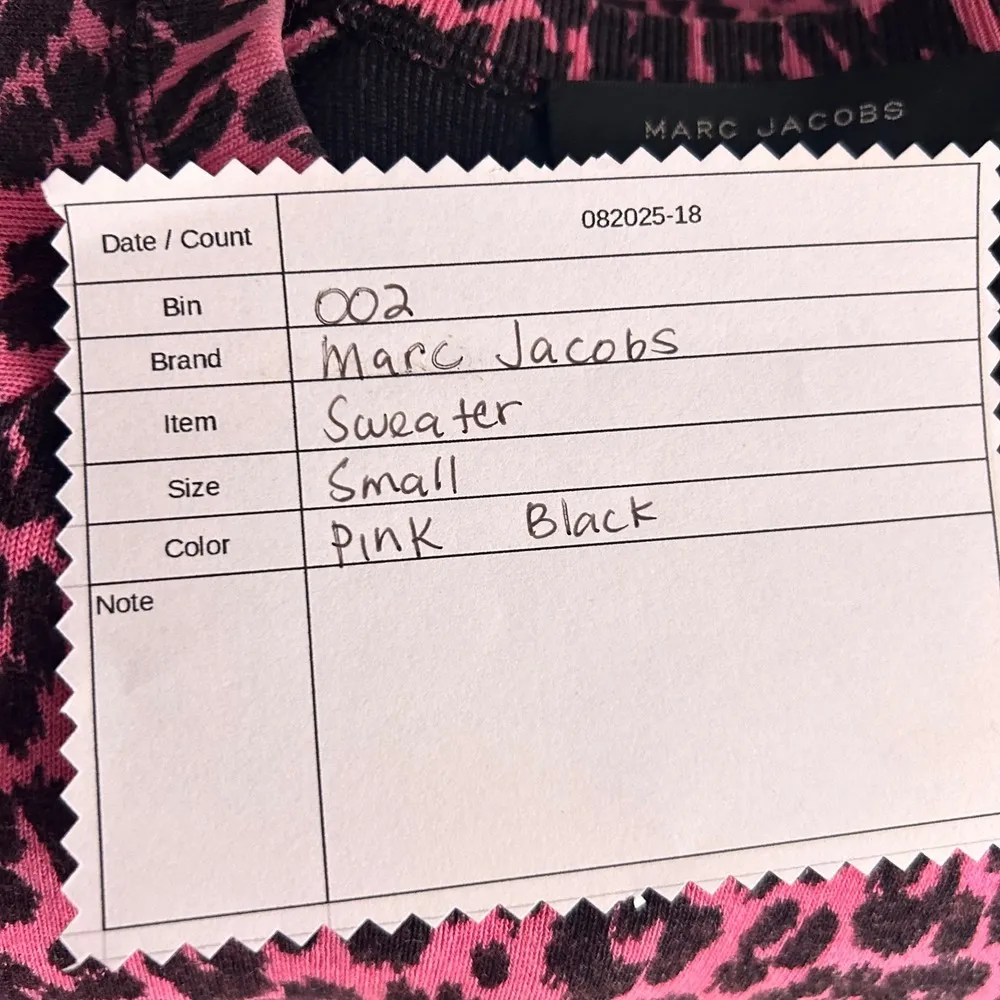 MARC JACOBS
Date / Count 082025-18
Bin 002
Brand Marc Jacobs
Item Sweater
Size Small
Color Pink Black
Note